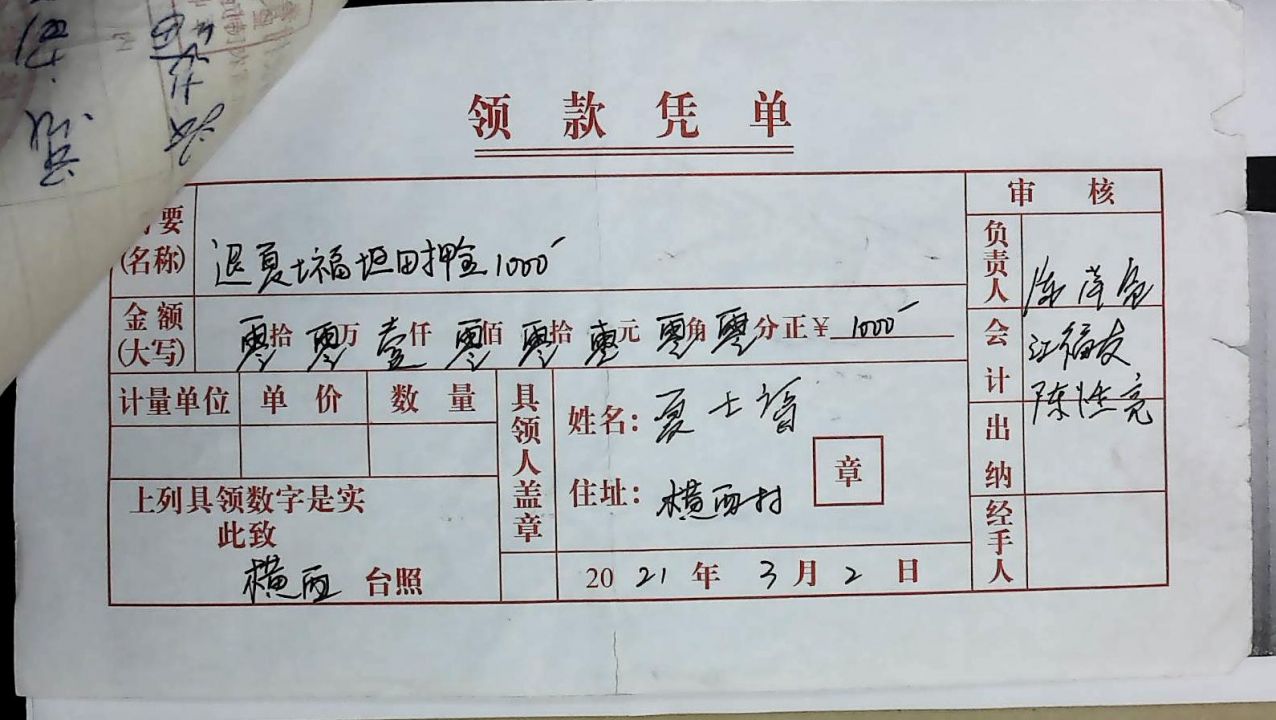 领款凭单
要
(名称)
退夏士福垣田押金1000
审核
负责人
金额
(大写)
零拾零万壹仟零佰零拾零元零角零分正￥1000
会计
江福友
陈
亮
计量单位 单价 数量
具领人盖章
姓名：夏士
住址：横西村
章
出纳
经手人
上列具领数字是实
此致
横西 台照
2021年3月2日